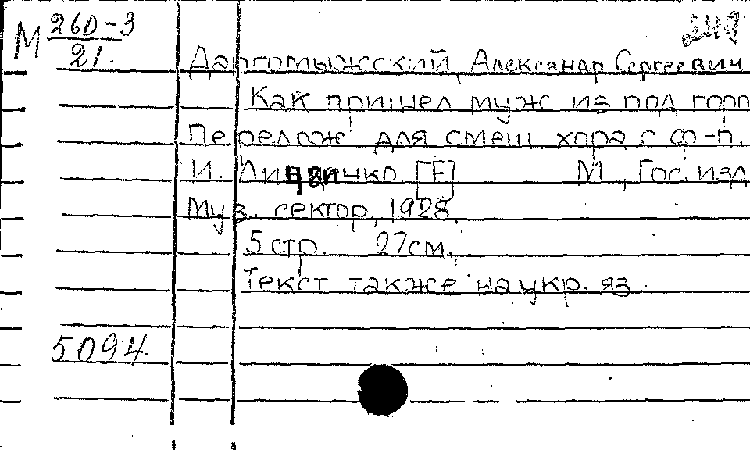 М 260-3
21.
Даргомыжский, Александр Сергеевич
Как пришел муж из под горо
Перелож для смеш. хора с ф-п.
И. [F] М., Гос. изд
Муз. сектор, 1928.
5 стр. 27см.
Текст также на укр. яз.
5094